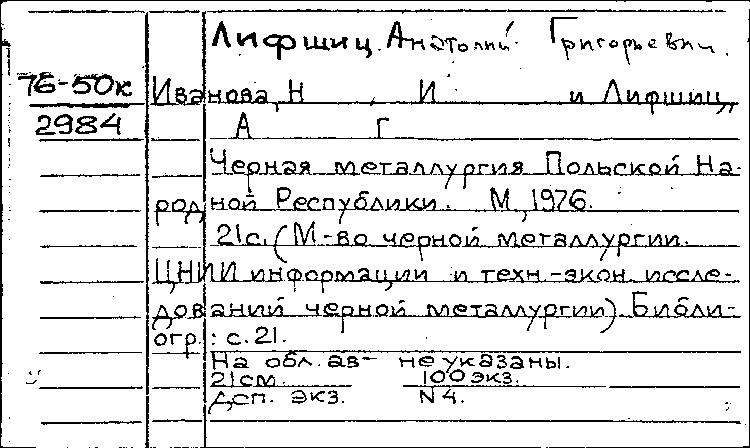 Лифшиц Анатолий Григорьевич.
76-50к
Иванова, Н И и Лифшиц,
2984
А Г
Черная металлургия Польской На-
родной Республики. М., 1976.
21с. (М-во черной металлургии.
ЦНИИ информации и техн.-экон. иссле-
дований черной металлургии) Библи-
огр.: с. 21.
На обл. ав- не указаны.
21см. 100 экз.
Деп. экз. N 4.